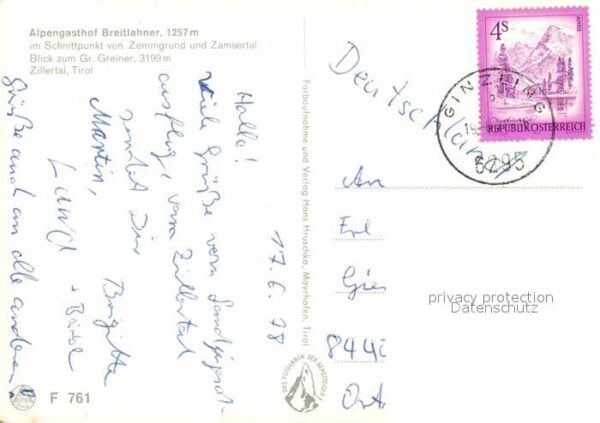 Alpengasthof Breitlahner, 1257 m
im Schnittpunkt von Zemmgrund und Zamsertal.
Blick zum Gr. Greiner, 3199 m
Zillertal, Tirol
17. 6. 78
Hallo!
viele Grüße vom
ausflug, vom Zillertal
sendet Dir
Brigitte
Martin,
+
Grüße auch an alle anderen!
F 761
Farbaufnahme und Verlag Hans Hruschka, Mayrhofen, Tirol
DAS FOTOLABOR DER BERGSTEIGER
4S
ALMSEE
REPUBLIK ÖSTERREICH
GINZLING
6295
Deutschland
An
Gie
Ort
privacy protection
Datenschutz